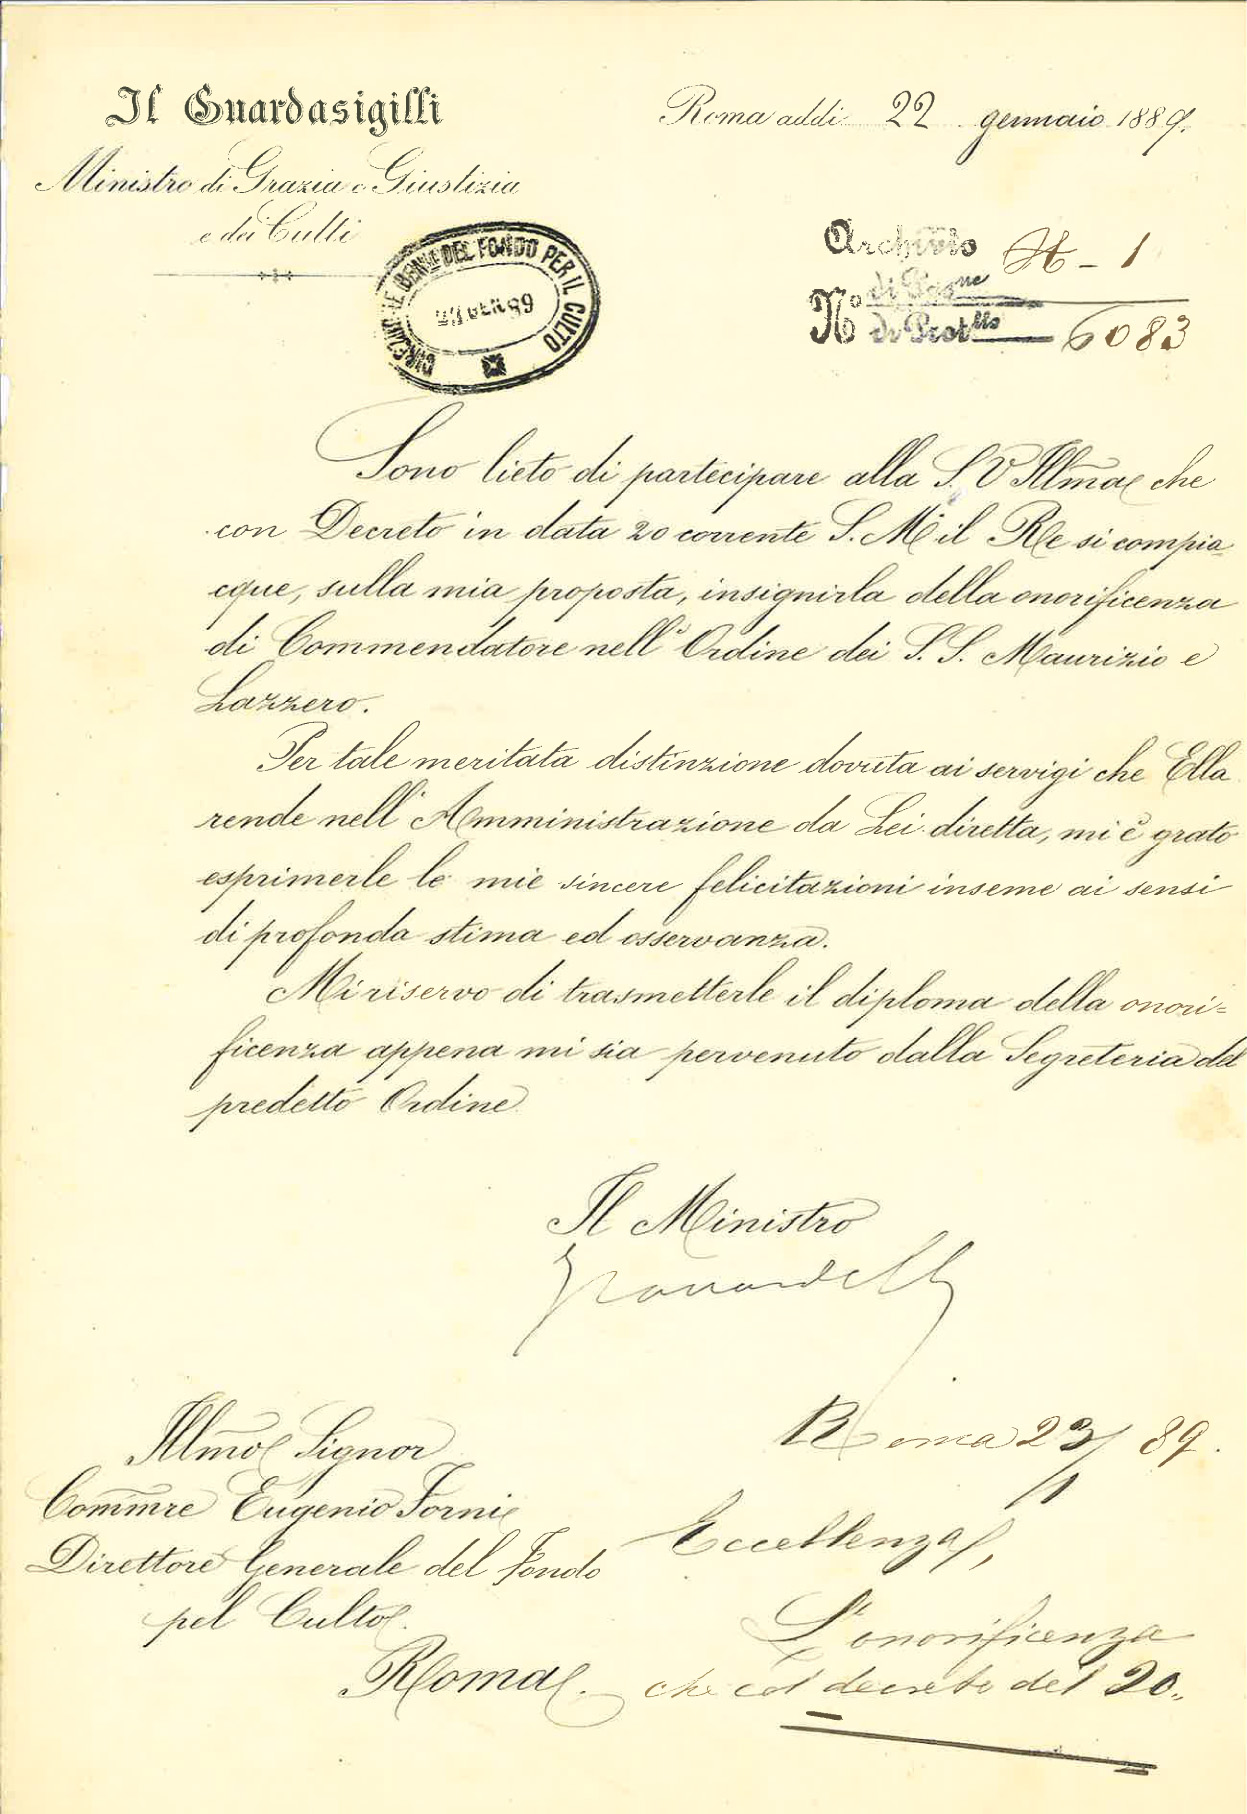 Il Guardasigilli
Ministro di Grazia e Giustizia
e dei Culti
Roma addì 22 gennaio 1889.
DIREZIONE GENLE DEL FONDO PER IL CULTO
GEN 89
Archivio H - 1
di Pzone
No di Protllo 6083
Sono lieto di partecipare alla S. V. Illma che
con Decreto in data 20 corrente S. M. il Re si compia-
cque, sulla mia proposta, insignirla della onorificenza
di Commendatore nell'Ordine dei S. S. Maurizio e
Lazzero.
Per tale meritata distinzione dovuta ai servigi che Ella
rende nell'Amministrazione da Lei diretta, mi è grato
esprimerle le mie sincere felicitazioni inseme ai sensi
di profonda stima ed osservanza.
Mi riservo di trasmetterle il diploma della onori=
ficenza appena mi sia pervenuto dalla Segreteria del
predetto Ordine
Il Ministro
Zanardelli
Illmo Signor
Commre Eugenio Forni
Direttore Generale del Fondo
pel Culto.
Roma.
Roma 23/1 89.
Eccellenza,
L'onorificenza
che col decreto del 20.